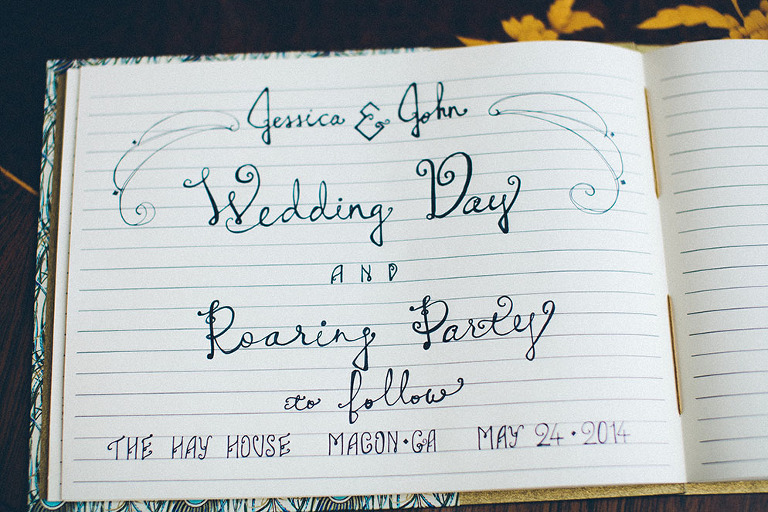 Jessica & John
Wedding Day
AND
Roaring Party
to follow
THE HAY HOUSE MACON·GA MAY 24·2014